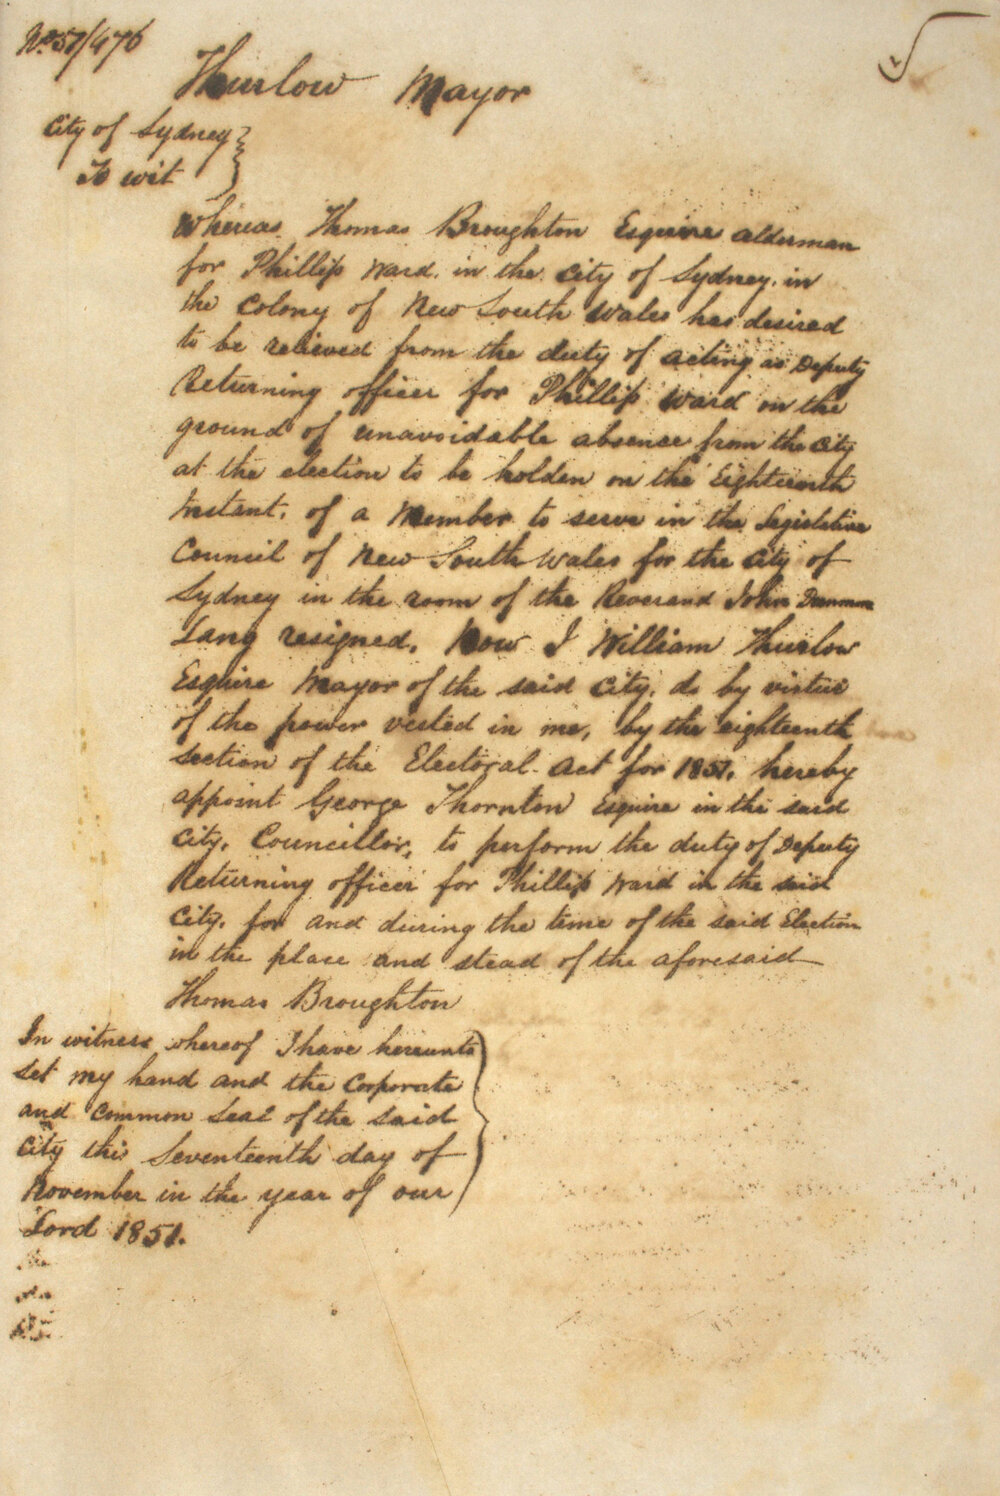 No 51/476
Thurlow Mayor
City of Sydney
To wit
Whereas Thomas Broughton Esquire alderman
for Phillip Ward. in the City of Sydney. in
the Colony of New South Wales has desired
to be relieved from the duty of acting as Deputy
Returning officer for Phillip Ward on the
ground of unavoidable absence from the City
at the election to be holden on the Eighteenth
Instant. of a Member to serve in the Legislative
Council of New South Wales for the City of
Sydney in the room of the Reverend John Dunmore
Lang resigned. Now I William Thurlow
Esquire Mayor of the said City. do by virtue
of the power vested in me, by the eighteenth
section of the Electoral Act for 1851. hereby
appoint George Thornton Esquire in the said
City. Councillor, to perform the duty of Deputy
Returning officer for Phillip Ward in the said
City. for and during the time of the said Election
in the place and stead of the aforesaid
Thomas Broughton
In witness whereof I have hereunto
set my hand and the Corporate
and Common Seal of the said
City this Seventeenth day of
November in the year of our
Lord 1851.